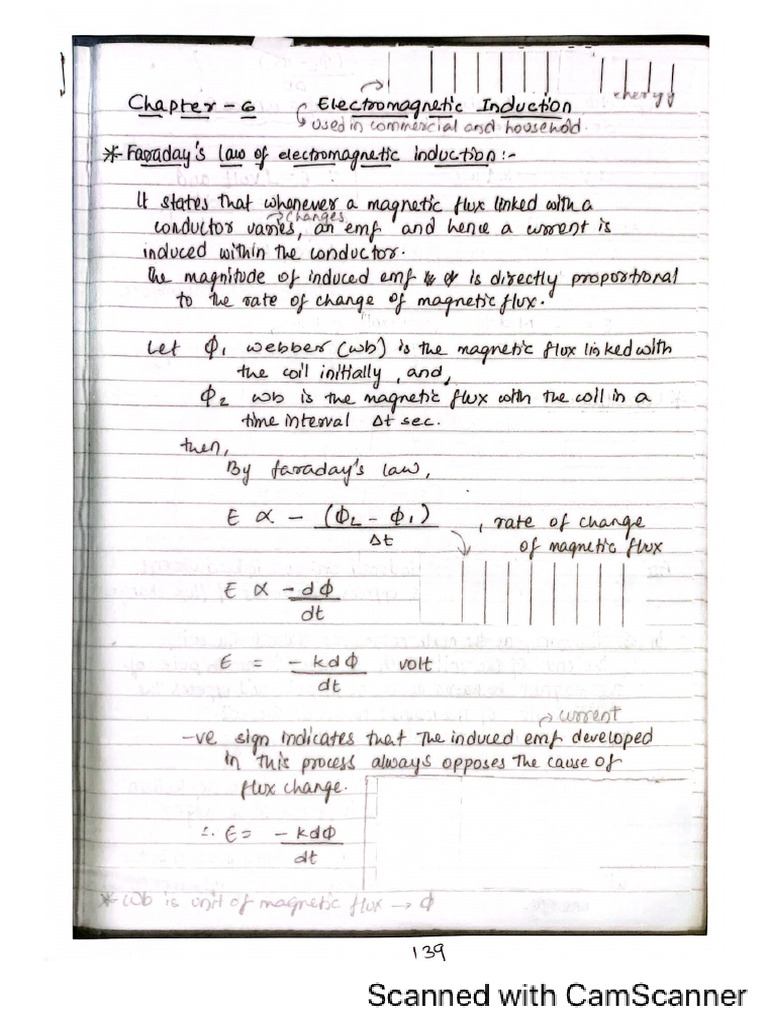 energy
Chapter - 6 Electromagnetic Induction
used in commercial and household.
* Faraday's law of electromagnetic induction :-
It states that whenever a magnetic flux linked with a
changes
conductor varies, an emf and hence a current is
induced within the conductor.
The magnitude of induced emf is directly proportional
to the rate of change of magnetic flux.
Let ϕ1 webber (wb) is the magnetic flux linked with
the coil initially, and,
ϕ2 wb is the magnetic flux with the coil in a
time interval Δt sec.
then,
By faraday's law,
E ∝ - (ϕ2 - ϕ1) / Δt , rate of change
of magnetic flux
E ∝ - dϕ / dt
E = - kdϕ / dt volt
current
-ve sign indicates that the induced emf developed
in this process always opposes the cause of
flux change.
∴ E = - kdϕ / dt
* Wb is unit of magnetic flux → ϕ
139
Scanned with CamScanner